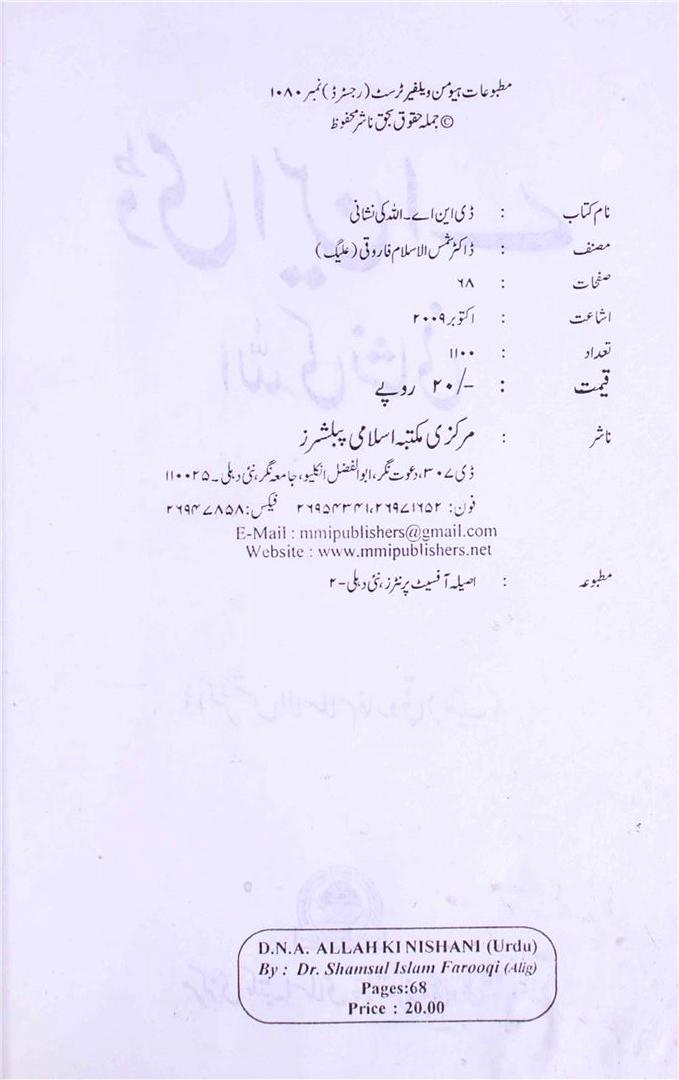 مطبوعات ہیومن ویلفیر ٹرسٹ (رجسٹرڈ) نمبر ۱۰۸۰
© جملہ حقوق بحق ناشر محفوظ
نام کتاب : ڈی این اے۔ اللہ کی نشانی
مصنف : ڈاکٹر شمس الاسلام فاروقی (علیگ)
صفحات : ۶۸
اشاعت : اکتوبر ۲۰۰۹
تعداد : ۱۱۰۰
قیمت : ۲۰/- روپے
ناشر : مرکزی مکتبہ اسلامی پبلشرز
ڈی ۳۰۷، دعوت نگر، ابوالفضل انکلیو، جامعہ نگر، نئی دہلی۔ ۱۱۰۰۲۵
فون: ۲۶۹۵۴۳۴۱،۲۶۹۷۱۶۵۲ فیکس: ۲۶۹۴۷۸۵۸
E-Mail : mmipublishers@gmail.com
Website : www.mmipublishers.net
مطبوعہ : اصیلہ آفسیٹ پرنٹرز، نئی دہلی-۲
D.N.A. ALLAH KI NISHANI (Urdu)
By : Dr. Shamsul Islam Farooqi (Alig)
Pages:68
Price : 20.00